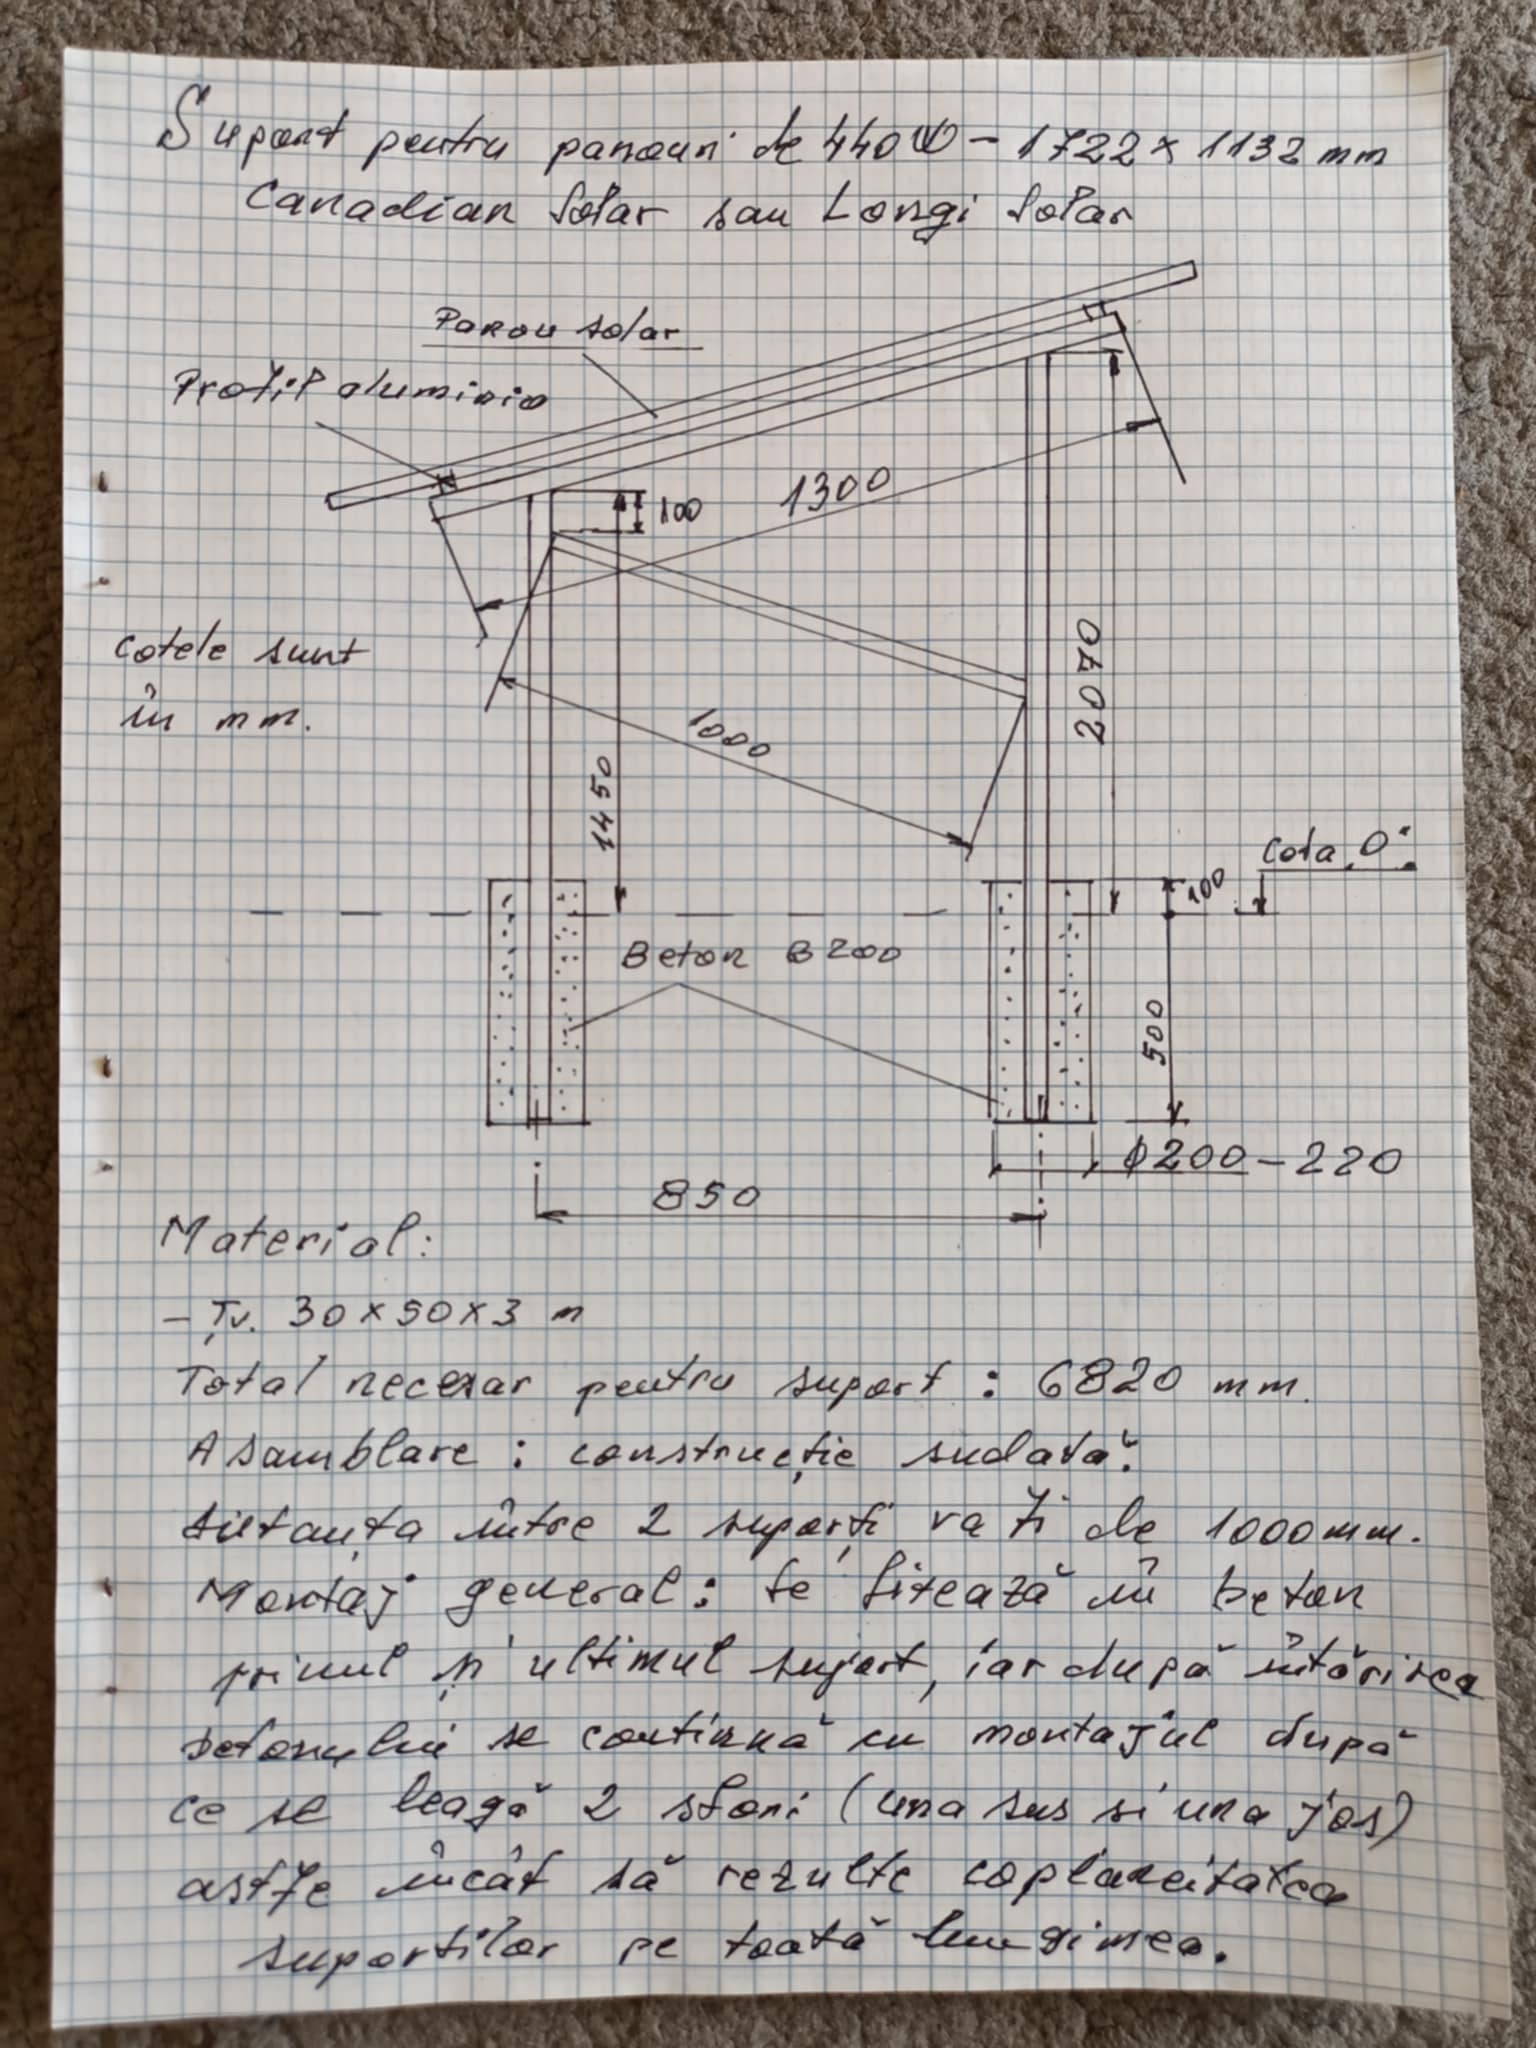 Suport pentru panouri de 440W - 1722 x 1132 mm
Canadian Solar sau Longi Solar
Panou solar
Profil aluminiu
100
1300
Cotele sunt
în mm.
1000
2070
1450
Cota „0"
100
Beton B200
500
φ200-220
850
Material:
- Țv. 30x50x3 m
Total necesar pentru suport : 6820 mm.
Asamblare : construcție sudată.
Distanța între 2 suporți va fi de 1000mm.
Montaj general: Se fixează în beton
primul și ultimul suport, iar după întărirea
betonului se continuă cu montajul după
ce se leagă 2 sfori (una sus și una jos)
astfe încât să rezulte coplaneitatea
suportilor pe toată lungimea.